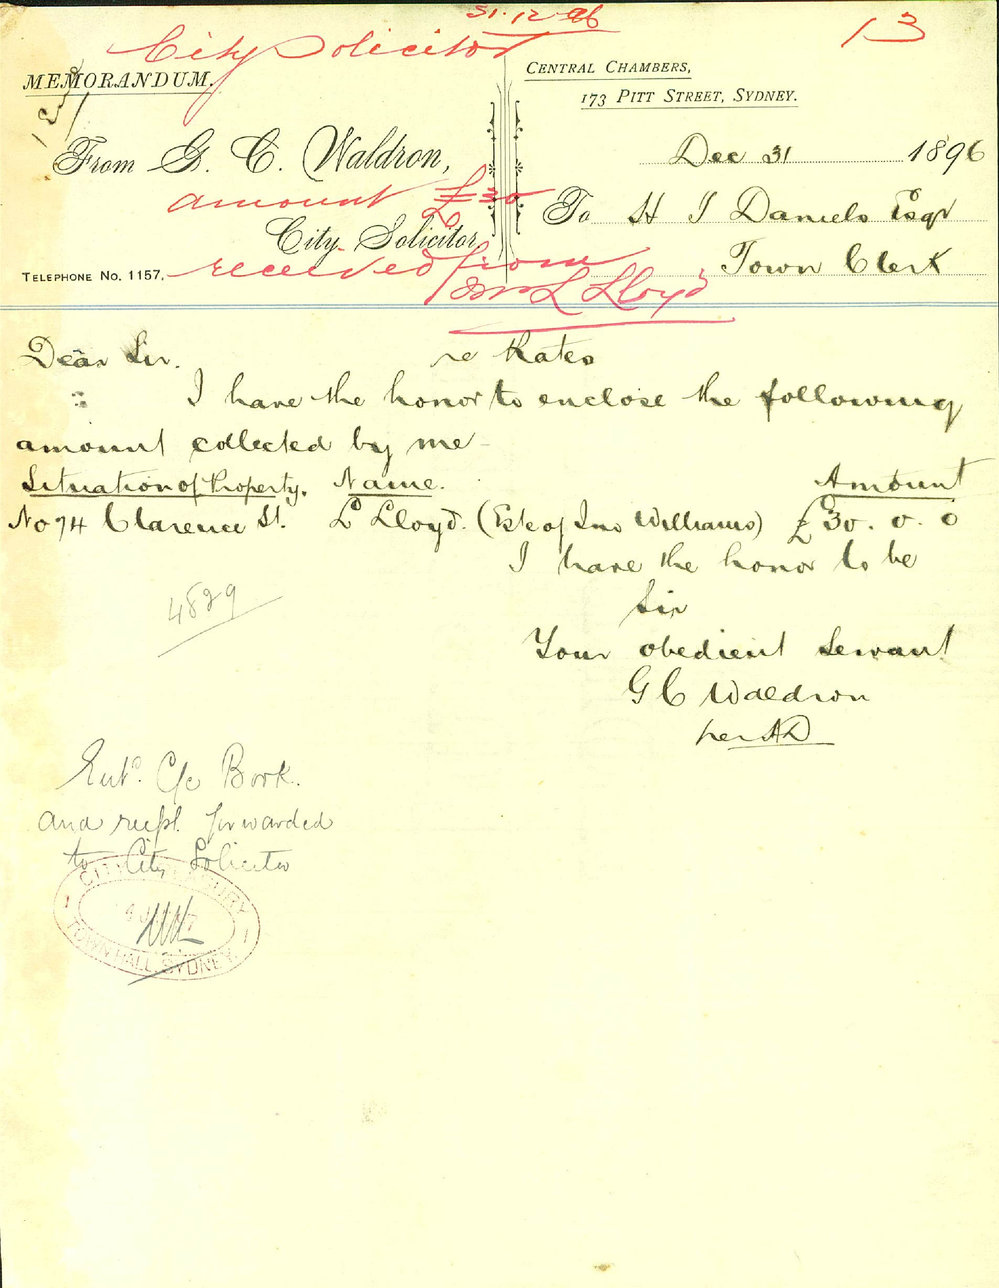 31.12.96
13
City Solicitor
MEMORANDUM.
CENTRAL CHAMBERS,
173 PITT STREET, SYDNEY.
From G. C. Waldron,
City Solicitor
TELEPHONE No. 1157.
amount £30
received from
L Lloyd
Dec 31 1896
To H J Daniels Esqr
Town Clerk
Dear Sir. re Rates
I have the honor to enclose the following
amount collected by me
Situation of Property. Name. Amount
No 74 Clarence St. L Lloyd. (Este of Jno Williams) £30. 0. 0
I have the honor to be
Sir
Your obedient Servant
G C Waldron
per AD
4829
Entd. C/c Book.
and recpt forwarded
to City Solicitor
CITY TREASURY
TOWN HALL, SYDNEY.